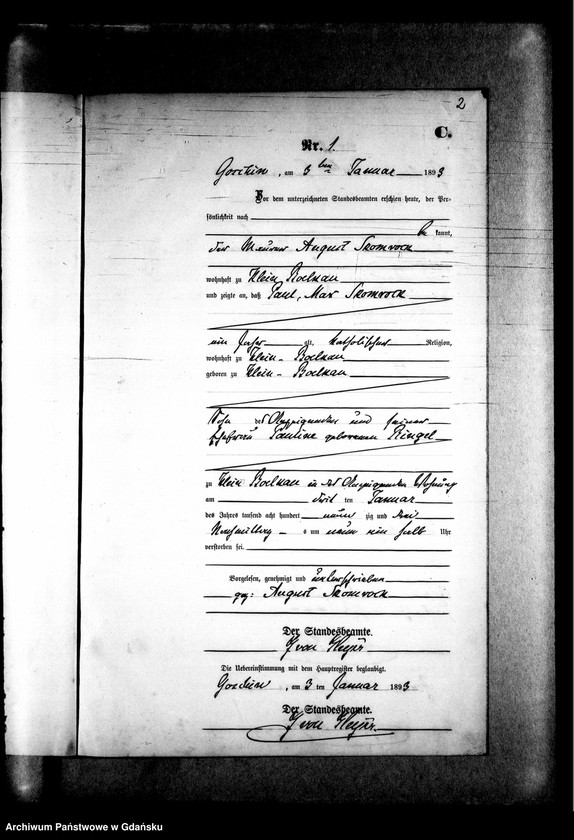 2
C.
Nr. 1.
am 3 ten Januar 1893
Vor dem unterzeichneten Standesbeamten erschien heute, der Per-
sönlichkeit nach
be kannt,
der Maurer August Skomrock
wohnhaft zu Klein Boelkau
und zeigte an, daß Paul, Max Skomrock
ein Jahr alt, katholischer Religion,
wohnhaft zu Klein-Boelkau
geboren zu Klein-Boelkau
Sohn des Anzeigenden und seiner
Ehefrau Pauline geborenen Ringel
zu Klein Boelkau in des Anzeigenden Wohnung
am drei ten Januar
des Jahres tausend acht hundert neun zig und drei
Nachmittag s um neun ein halb Uhr
verstorben sei.
Vorgelesen, genehmigt und unterschrieben
gez: August Skomrock
Der Standesbeamte.
von
Die Uebereinstimmung mit dem Hauptregister beglaubigt.
am 3 ten Januar 1893
Der Standesbeamte.
von
Archiwum Państwowe w Gdańsku